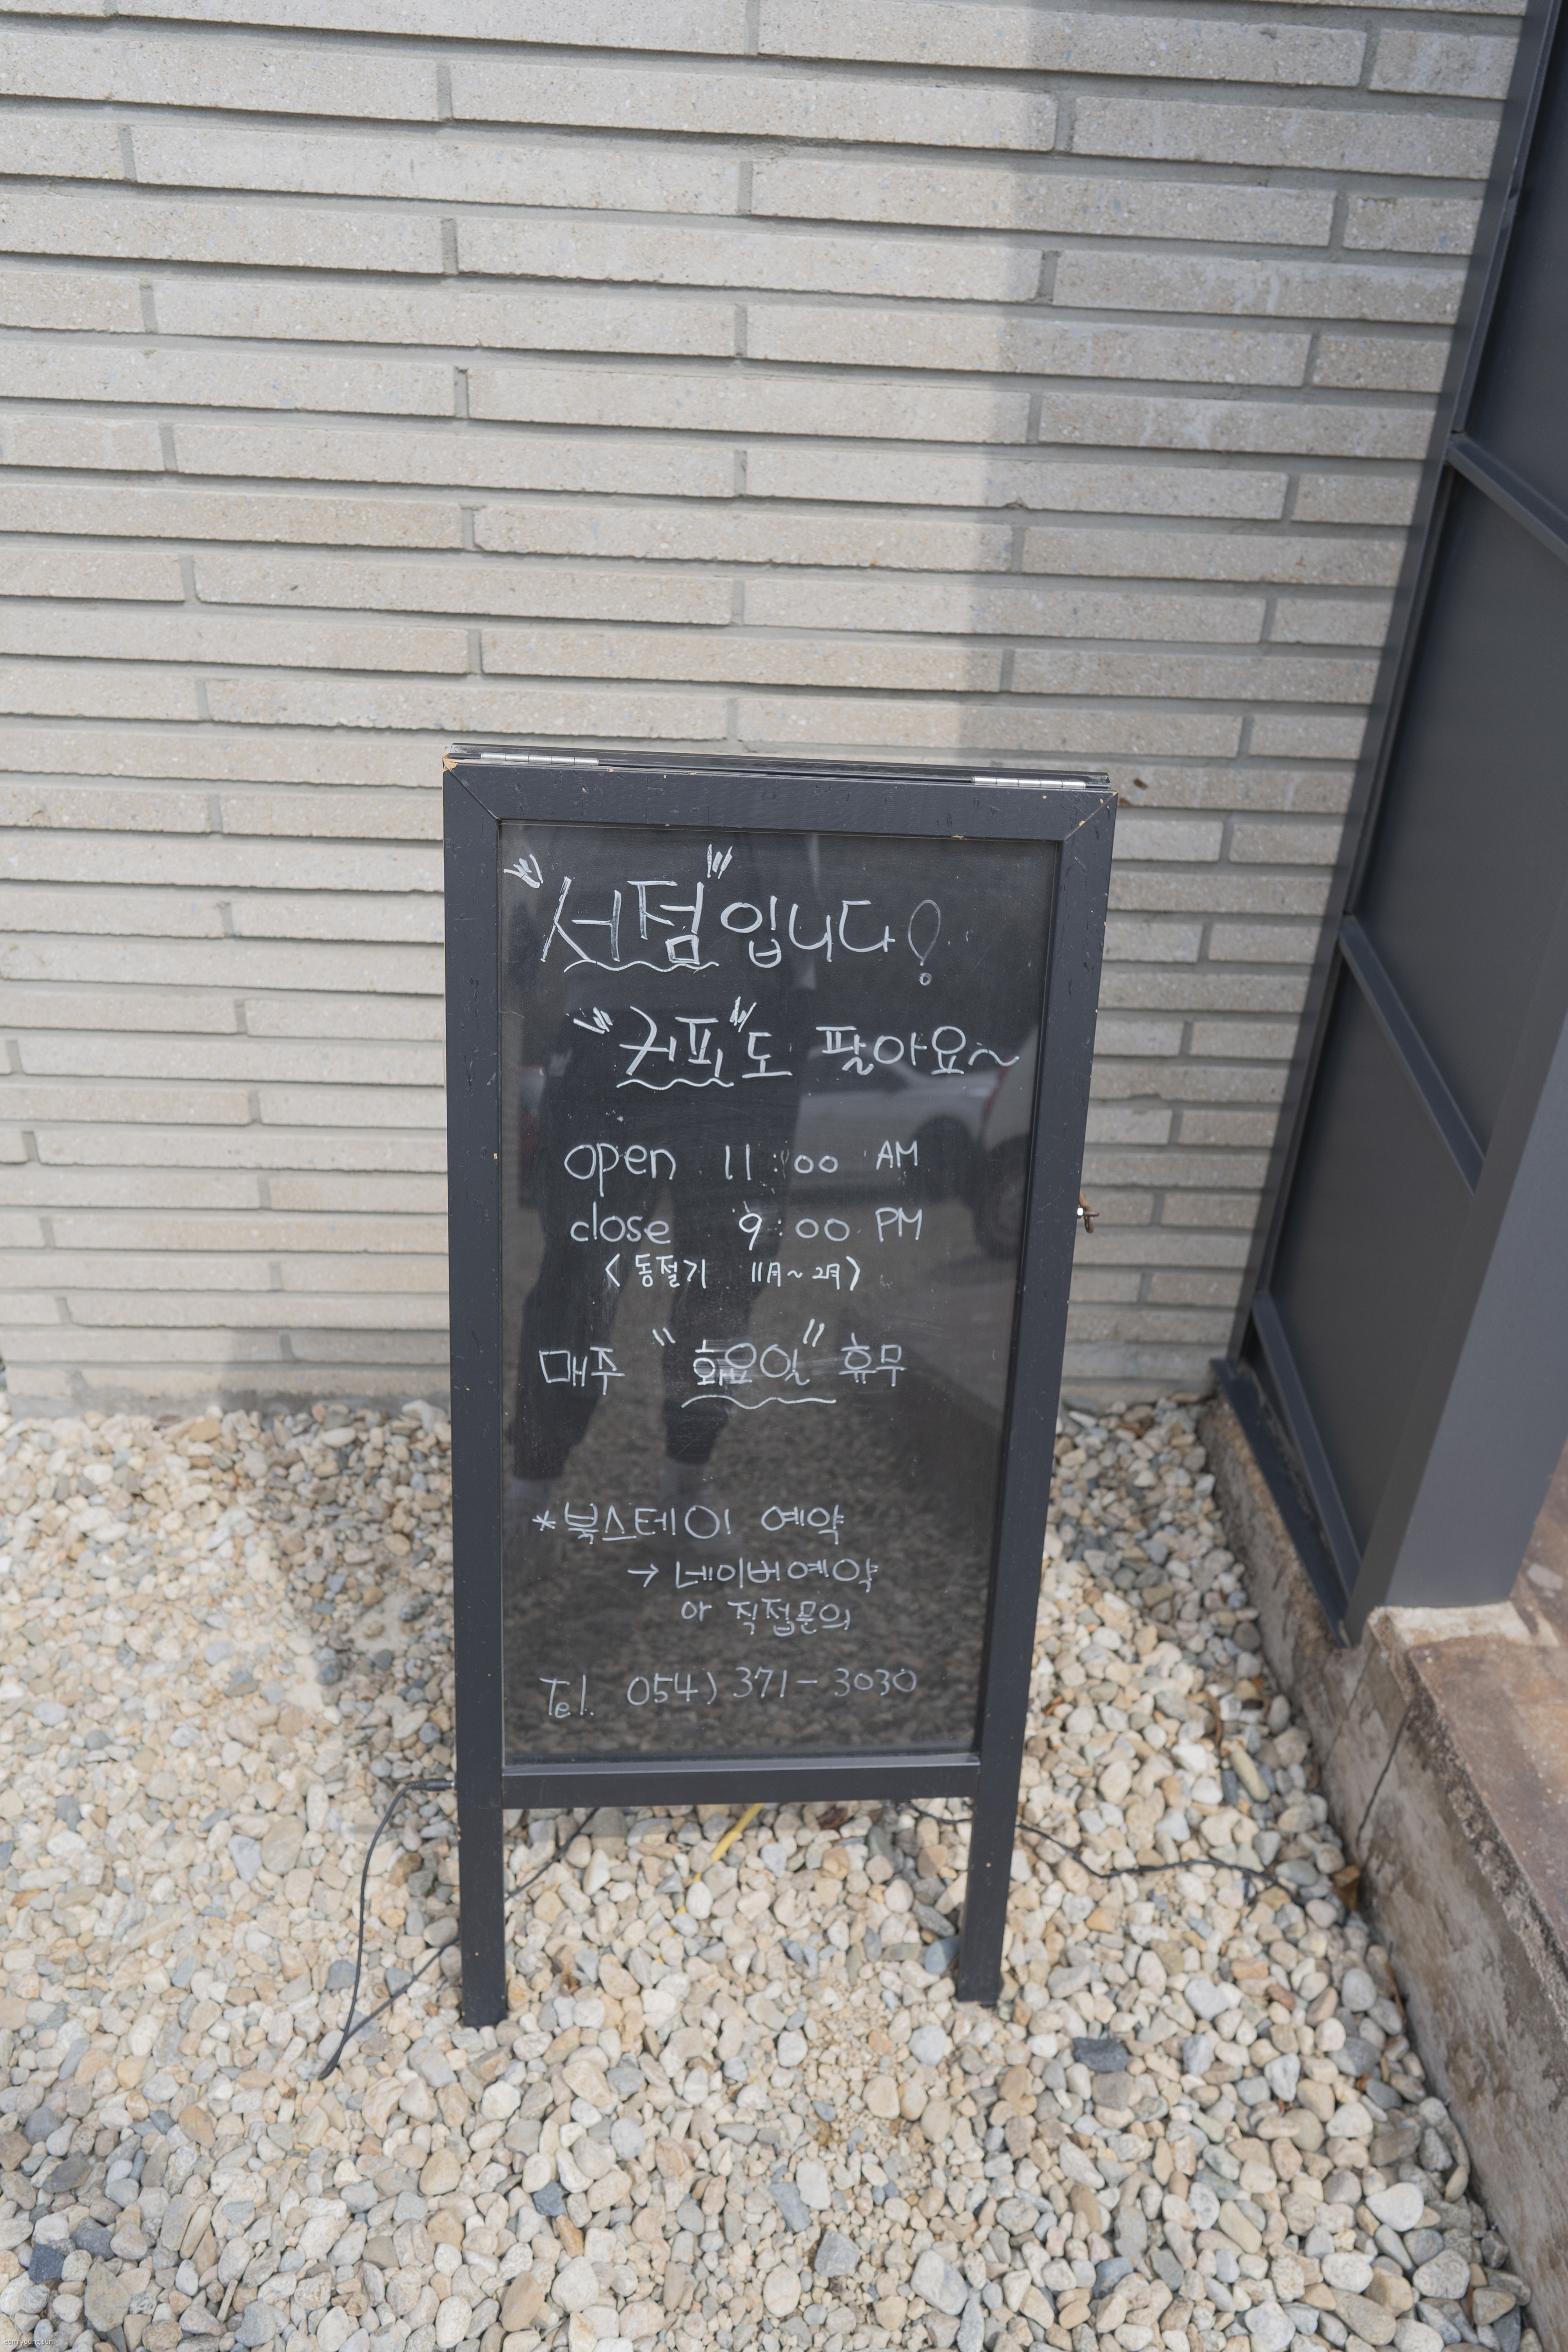 "서점"입니다!
"커피"도 팔아요~
open 11:00 AM
close 9:00 PM
<동절기 11月~2月>
매주 "화요일" 휴무
*북스테이 예약
→ 네이버예약
or 직접문의
Tel. 054) 371-3030